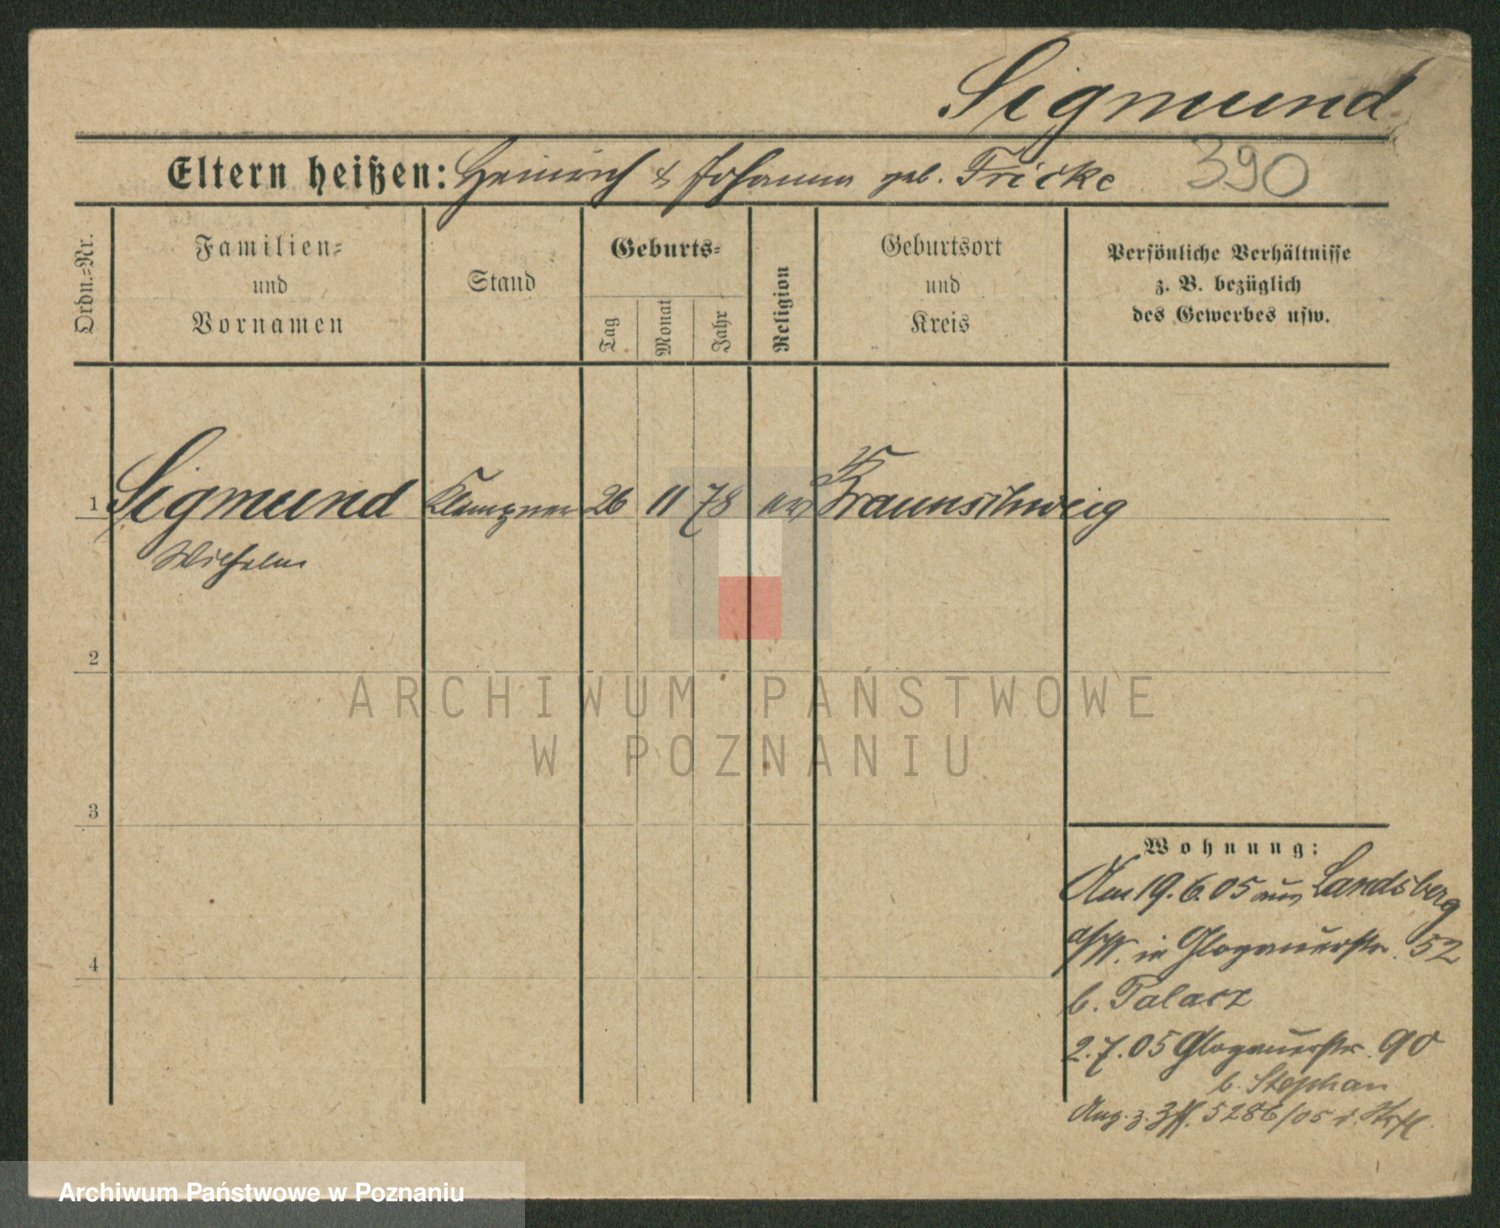 Sigmund
Eltern heißen: Heinrich & Johanna geb. Fricke 390
Ordn.=Nr.
Familien=
und
Vornamen
Stand
Geburts=
Tag
Monat
Jahr
Religion
Geburtsort
und
Kreis
Persönliche Verhältnisse
z. B. bezüglich
des Gewerbes usw.
1 Sigmund Klempner 26 11 78 Braunschweig
Wilhelm
2
3
4
Wohnung:
Am 19.6.05 aus Landsberg
a/W. in Glogauerstr. 52
b. Talarz
2.7.05 Glogauerstr. 90
b. Stephan
Ang. z. 5286/05
ARCHIWUM PAŃSTWOWE
W POZNANIU
Archiwum Państwowe w Poznaniu